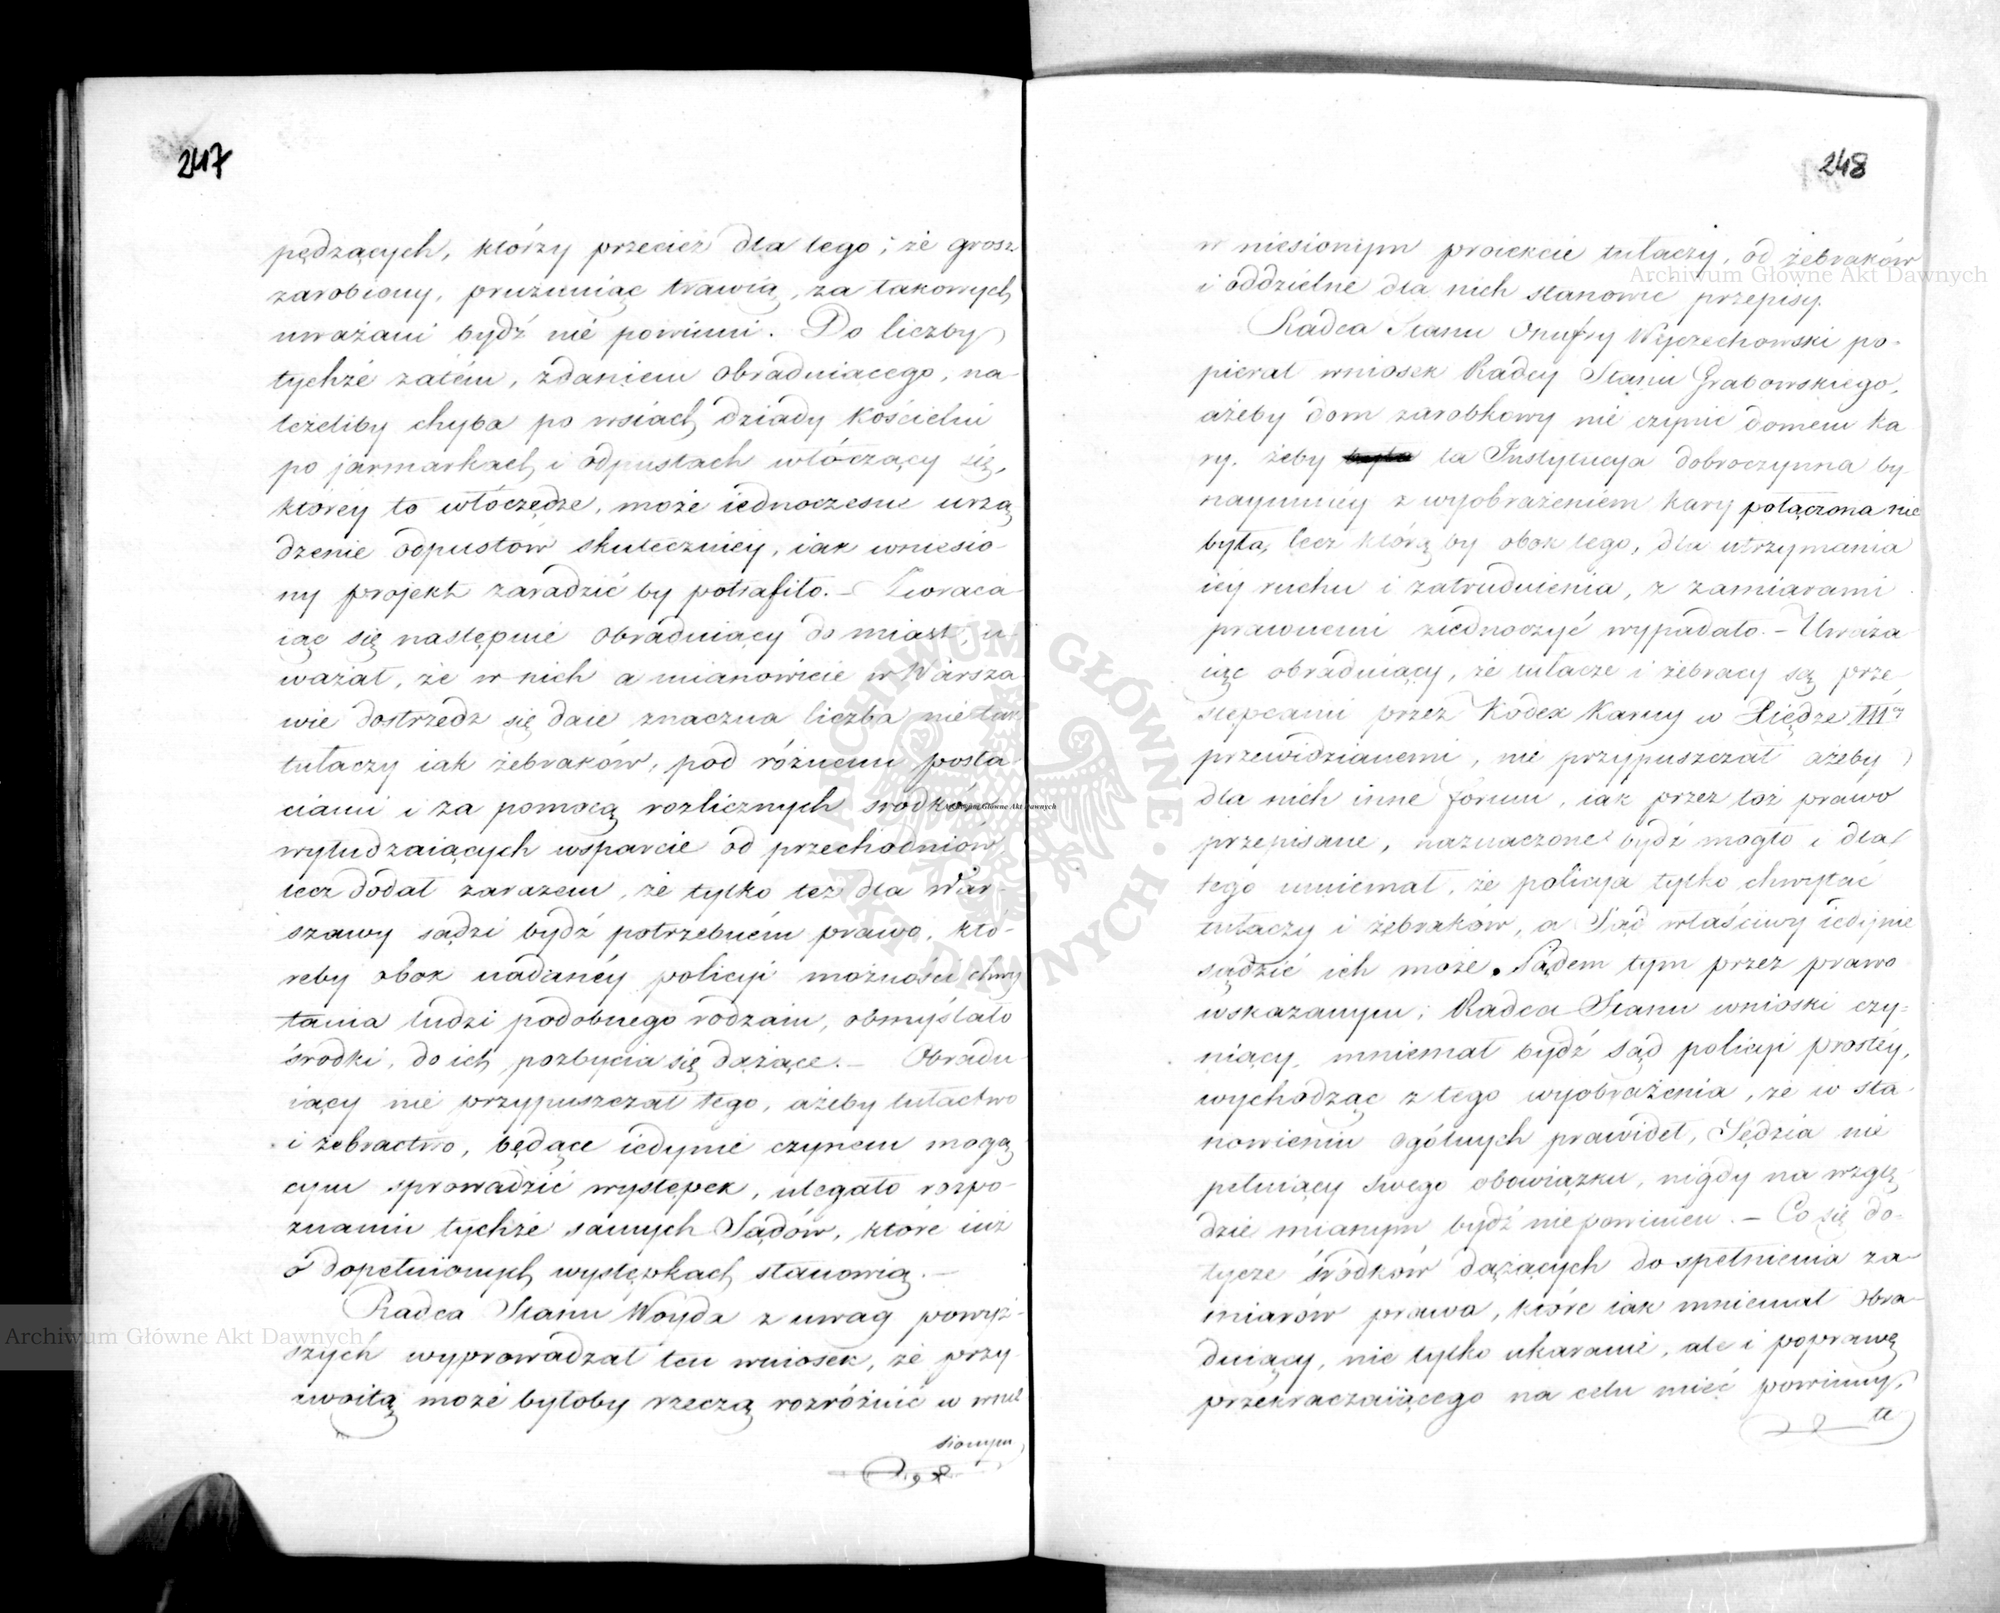 247
pędzących, którzy przecież dla tego, że grosz
zarobiony, próżniąc trawią, za takowych
uważani bydź nie powinni. Do liczby
tychże zatém, zdaniem obraduiącego, na-
leżeliby chyba po wsiach dziady kościelni
po jarmarkach i odpustach włóczący się,
któréy to włóczędze, może iednoczesne urzą
dzenie odpustów skuteczniéy, iak wniesio-
ny projekt zaradzić by potrafiło. – Zwraca
iąc się następnie obraduiący do miast u-
ważał, że w nich a mianowicie w Warsza
wie dostrzedz się daie znaczna liczba nie tak
tułaczy iak żebraków, pod różnemi posta
ciami i za pomocą rozlicznych srodków,
wyłudzaiących wsparcie od przechodniów
lecz dodał zarazem, że tylko też dla War-
szawy sądzi bydź potrzebném prawo, któ-
reby obok nadanéy policyi możności chwy
tania ludzi podobnego rodzaiu, obmyślało
środki, do ich pozbycia się dążące. – Obradu
iący nie przypuszczał tego, ażeby tułactwo
i żebractwo, będące iedynie czynem mogą
cym sprowadzić występek, ulegało rozpo-
znaniu tychże samych Sądów, które iuż
o dopełnionych występkach stanowią. –
Radca Stanu Woyda z uwag powyż-
szych wyprowadzał ten wniosek, że przy
zwoitą może byłoby rzeczą rozróżnić w wnie
sionym
248
w niesionym proiekcie tułaczy, od żebraków
i oddzielne dla nich stanowić przepisy.
Radca Stanu Onufry Wyczechowski po-
pierał wniosek Radcy Stanu Grabowskiego,
ażeby dom zarobkowy nie czynić domem ka
ry, żeby ta Instytucyja dobroczynna by
naymniéy z wyobrażeniem kary połączona nie
była, lecz którą by obok tego, dla utrzymania
iéy ruchu i zatrudnienia, z zamiarami
prawnemi ziednoczyć wypadało. – Uważa
iąc obraduiący, że tułacze i żebracy są prze-
stępcami przez Kodex Karny w Xiędze III
przewidzianemi, nie przypuszczał ażeby
dla nich inne forum, iak przez toż prawo
przepisane, naznaczone bydź mogło i dla
tego mniemał, że policyja tylko chwytać
tułaczy i żebraków, a Sąd właściwy iedynie
sądzić ich może. Sądem tym przez prawo
wskazanym, Radca Stanu wnioski czy-
niący, mniemał bydź Sąd policyi prostéy,
wychodząc z tego wyobrażenia, że w sta-
nowieniu ogólnych prawideł, Sędzia nie
pełniący swego obowiązku, nigdy na wzglę
dzie mianym bydź niepowinien. – Co się do-
tycze śródków dążących do spełnienia za-
miarów prawa, które iak mniemał obra-
duiący, nie tylko ukaranie, ale i poprawę
przekraczaiącego na celu mieć powinny,
te
Archiwum Główne Akt Dawnych
Archiwum Główne Akt Dawnych
Archiwum Główne Akt Dawnych
ARCHIWUM GŁÓWNE AKT DAWNYCH